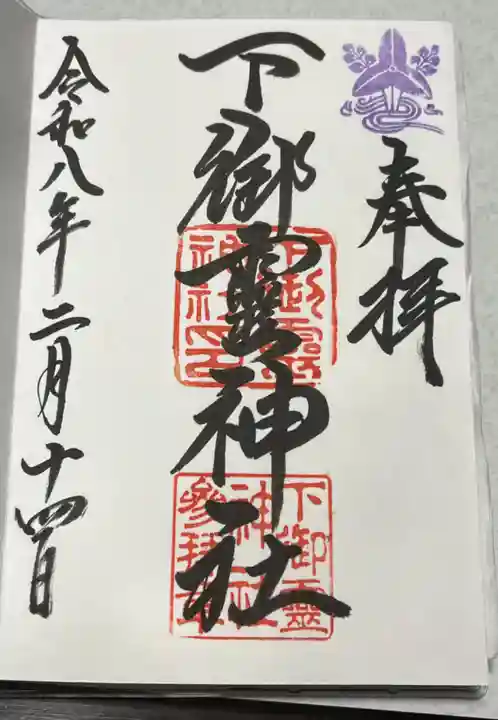 奉拝
下御靈神社
下御霊
神社印
下御靈
神社
參拜章
令和八年二月十四日